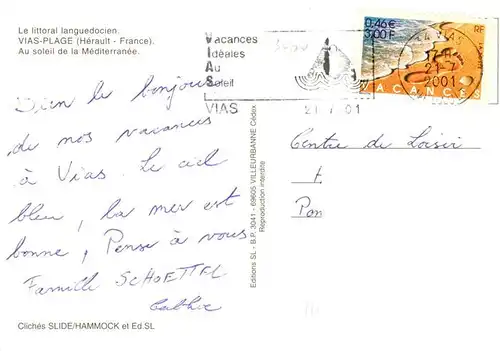 Le littoral languedocien.
VIAS-PLAGE (Hérault - France).
Au soleil de la Méditerranée.
Vacances
Idéales
Au
Soleil
VIAS
0,46€
3,00F
RF
VACANCES
VIAS
21-7
2001
21.7.01
Bien le bonjour
de nos vacances
à Vias. Le ciel
bleu, la mer est
bonne, Pense à vous
Famille SCHOETTEL
Centre de Loisir
Editions SL - B.P. 3041 - 69605 VILLEURBANNE Cédex
Reproduction interdite
Clichés SLIDE/HAMMOCK et Ed.SL